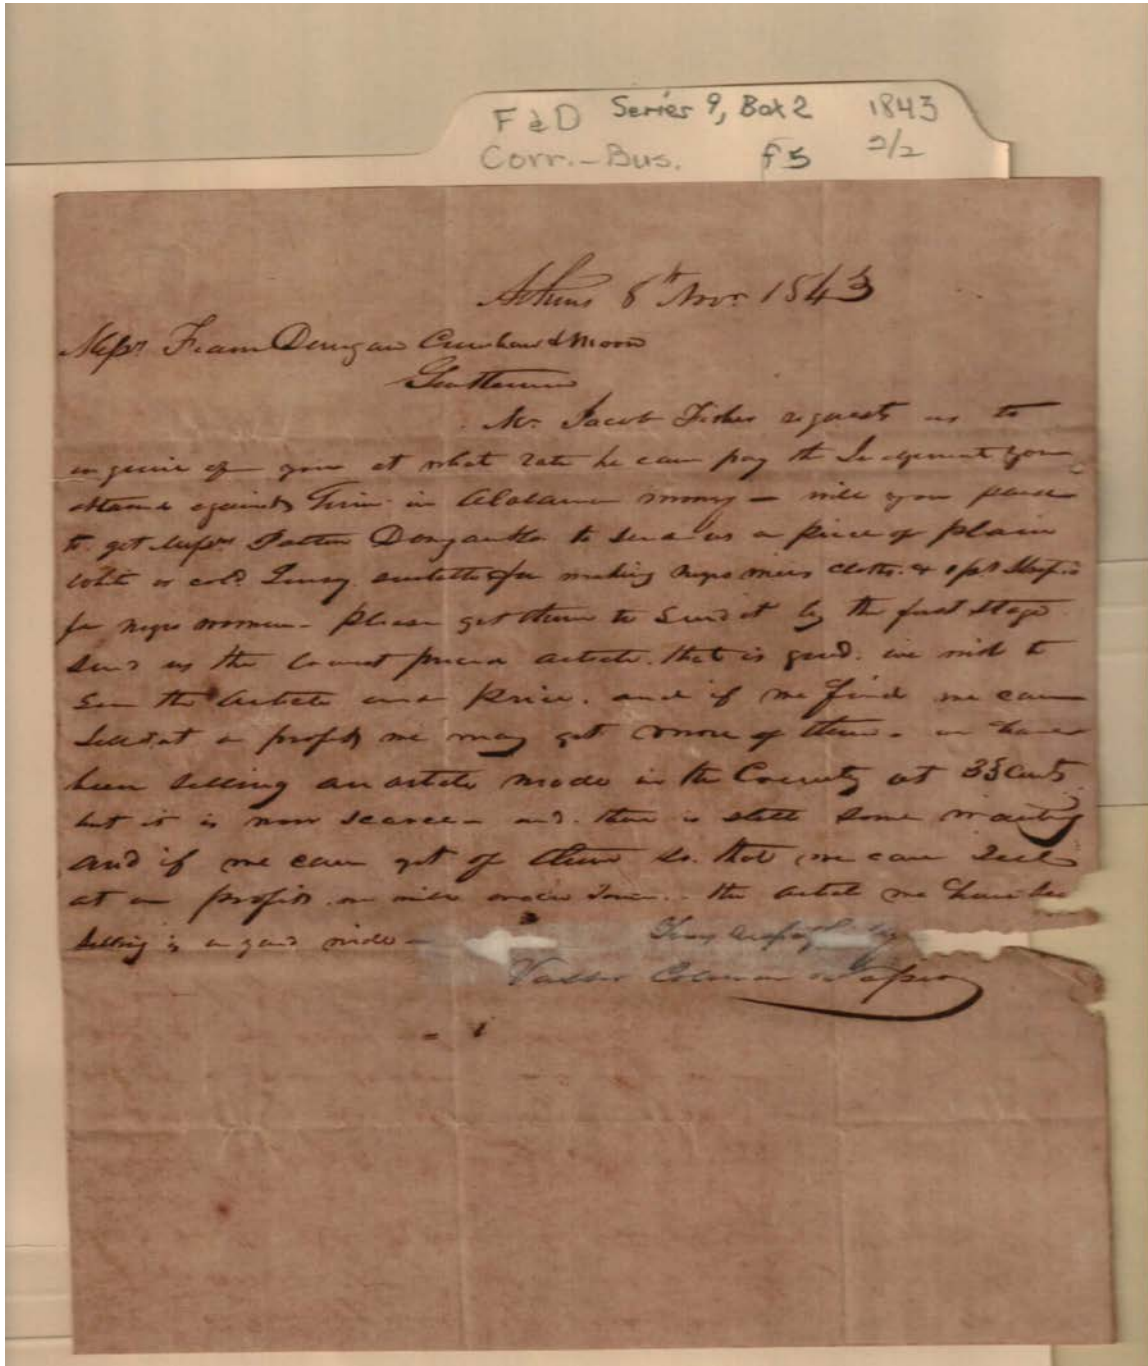 F & D Series 9, Box 2 1843
Corr. - Bus. f5 2/2
Athens 8th Novr 1843
Messrs Fearn Donegan Crenshaw & Moore
Gentlemen
Mr. Jacob Fisher requests us to
enquire of you at what rate he can pay the Judgement you
against him in Alabama money — will you please
to get Messrs Patton Donegan & Co to send us a piece of plain
white or cold Linsey suitable for making negro mens cloths. & 1 ps Strip'd
for negro women - Please get them to send it by the first stage
send us the lowest priced article that is good. we wish to
see the article and price. and if we find we can
sell it at a profit we may get more of them - we have
been selling an article made in the County at 35 Cents
but it is now scarce - and there is still some wanting
and if we can get of them so that we can sell
at a profit we will order some. the article we have been
selling is a yard wide -
Very respectfully
Vasser Coleman &